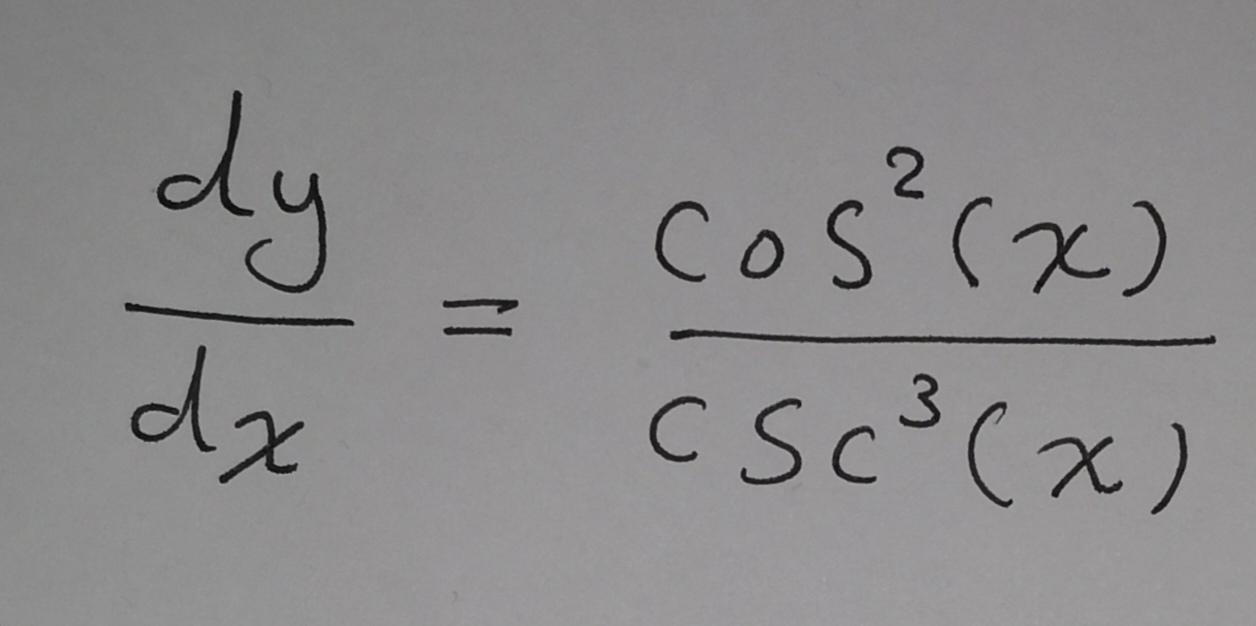 dy/dx = cos²(x)/csc³(x)